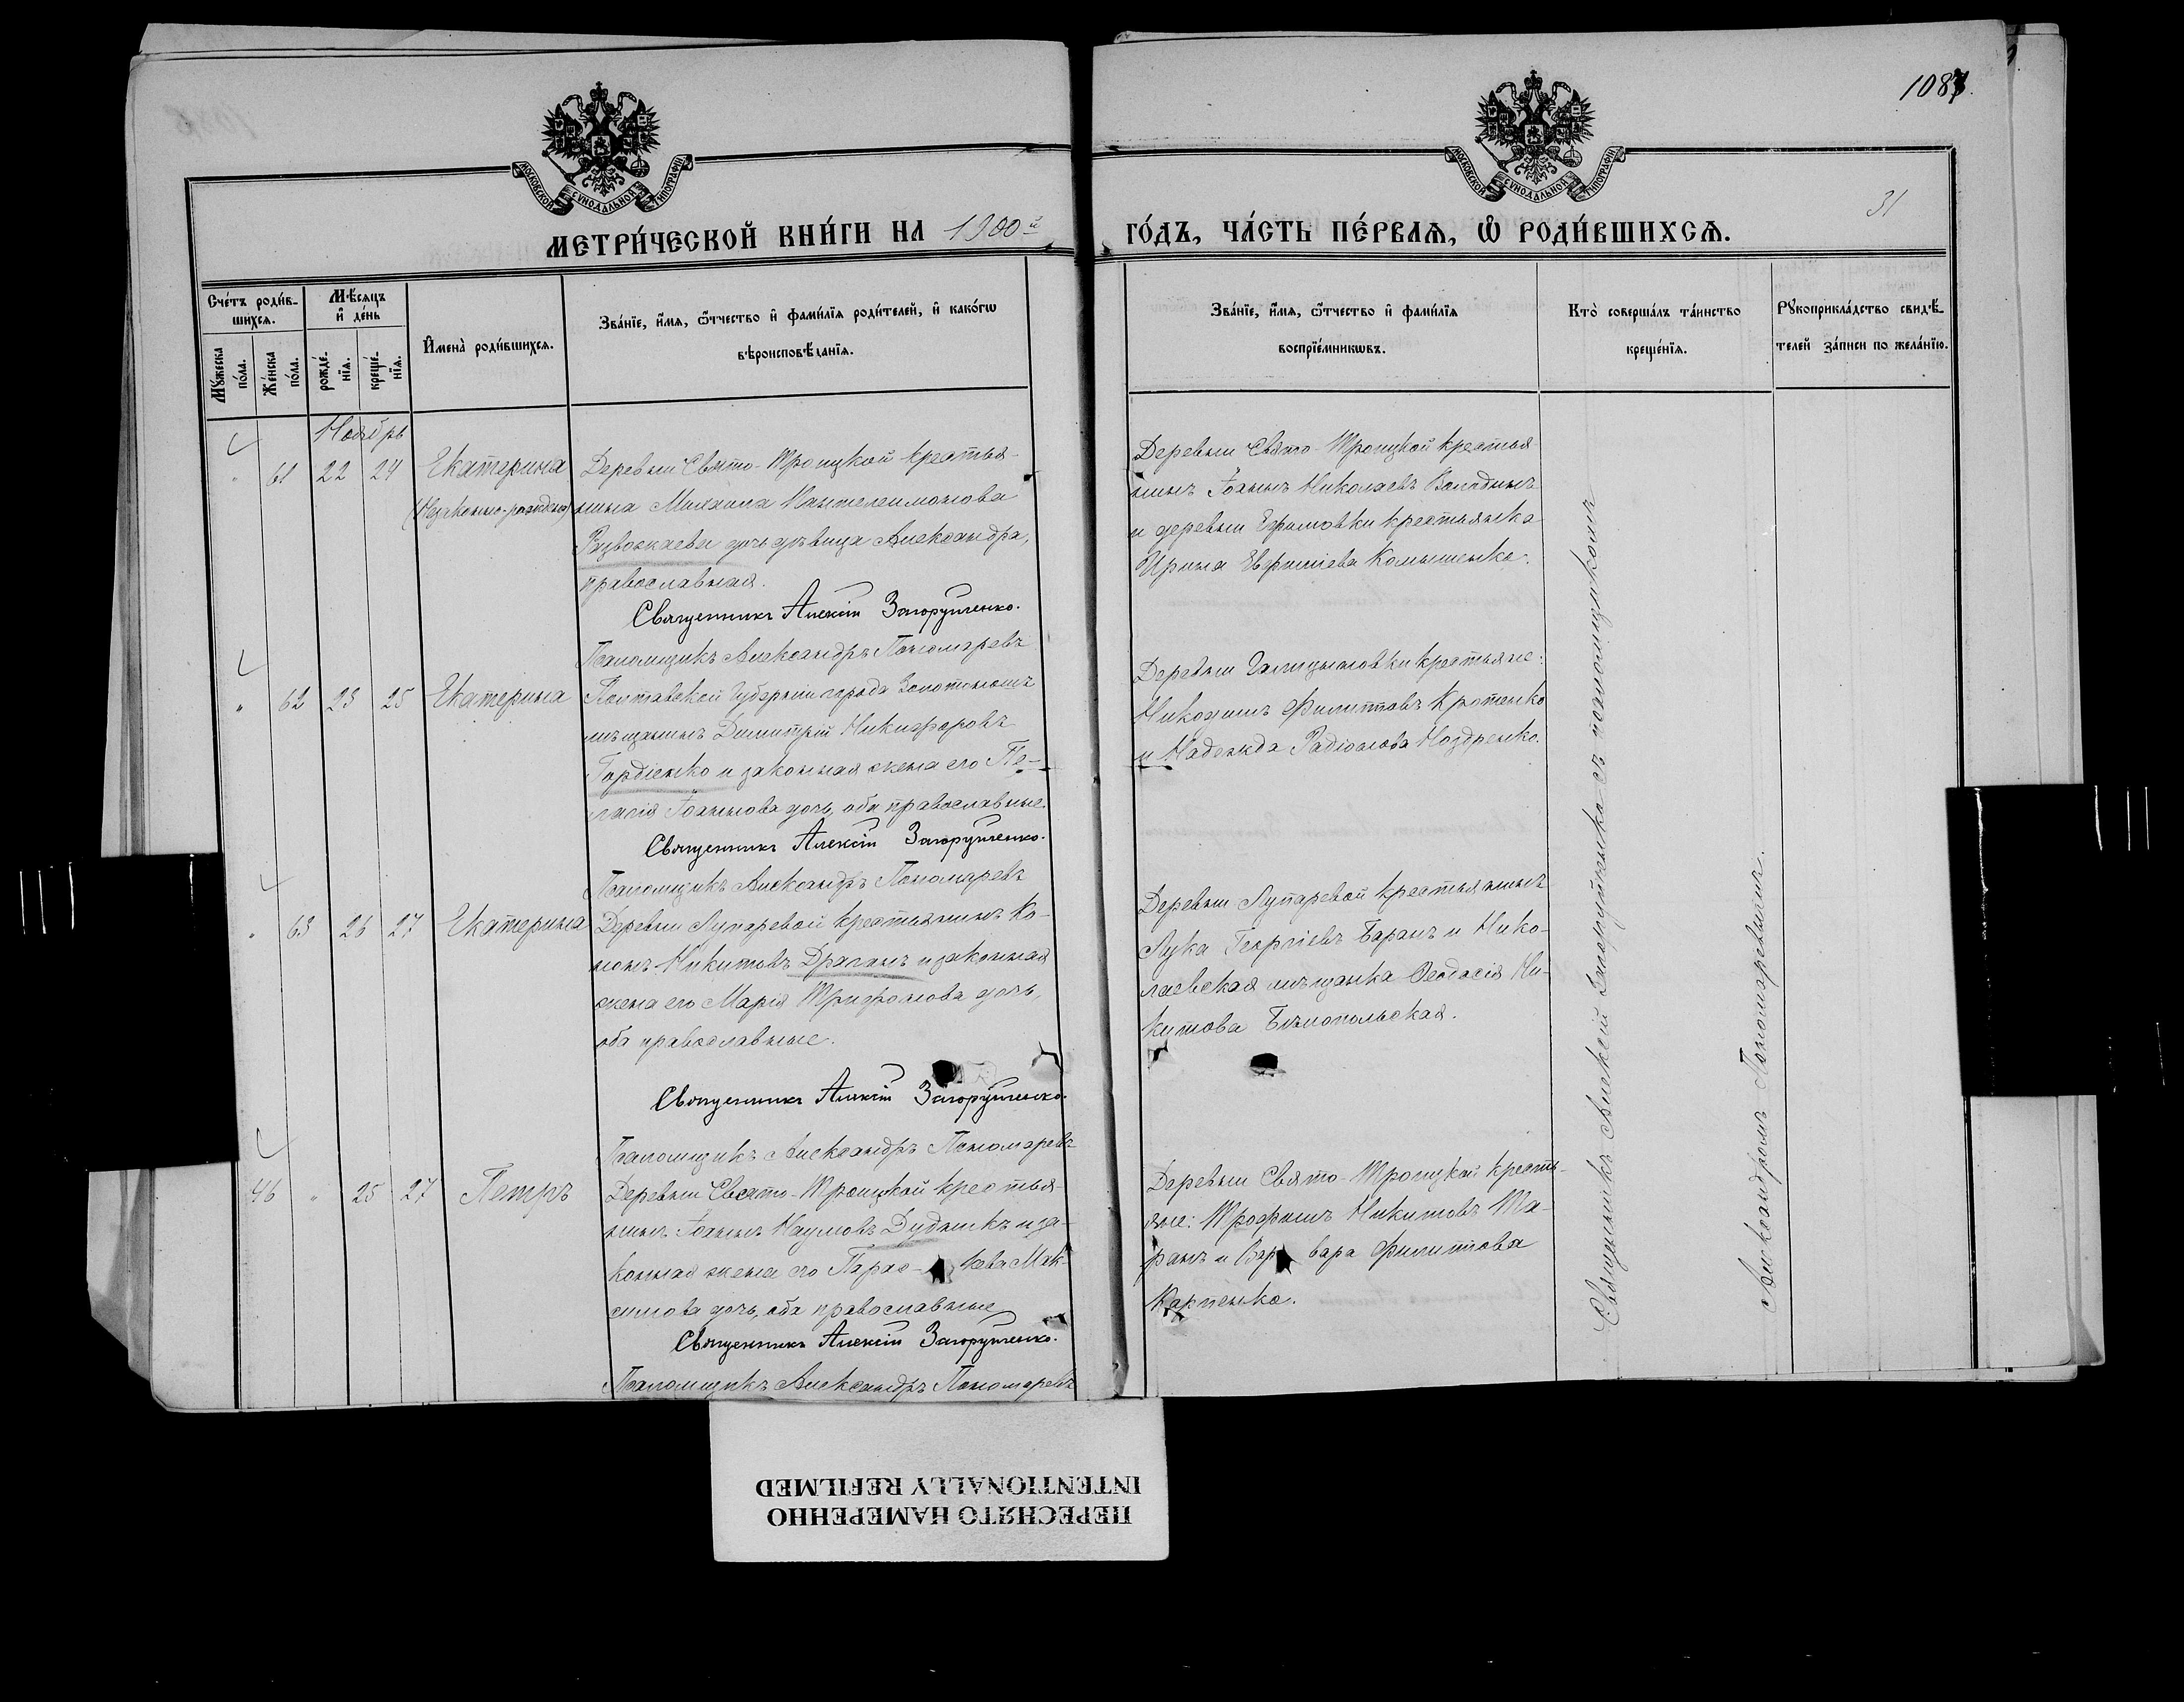 1087.
31
МОСКОВСКОЙ СѴНОДАЛЬНОЙ ТИПОГРАФІИ
МОСКОВСКОЙ СѴНОДАЛЬНОЙ ТИПОГРАФІИ
МЕТРИ́ЧЕСКОЙ КНИ́ГИ НА 1900й
ГО́ДЪ, ЧА́СТЬ ПЕ́РВАѦ, Ѿ РОДИ́ВШИХСѦ.
Сче́тъ роди́в-
шихсѧ.
Мѣ́сѧцъ
и҆ де́нь
Мꙋ́жеска
по́ла.
Же́нска
по́ла.
рожде́-
нїѧ.
креще́-
нїѧ.
И҆мена̀ роди́вшихсѧ.
Зва́нїе, и҆́мѧ, ѻ҆́тчество и҆ фами́лїѧ роди́телей, и҆ како́гѡ
вѣроисповѣ́данїѧ.
Зва́нїе, и҆́мѧ, ѻ҆́тчество и҆ фами́лїѧ
воспрїе́мникѡвъ.
Кто̀ соверша́лъ та́инство
креще́нїѧ.
Рꙋкоприкла́дство свидѣ́-
телей за́писи по жела́нїю.
Ноябрь
" 61 22 24 Екатерина
(Незаконно-рожден.)
Деревни Свято-Троицкой крестья-
нина Михаила Пантелеимонова
дочь дѣвица Александра,
православная.
Священникъ Алексій Загоруйченко.
Псаломщикъ Александръ Пономаревъ
Деревни Свято-Троицкой крестья-
нинъ Іоаннъ Николаевъ
и деревни Ефимовки крестьянка
Ирина Евфиміева Комышенко.
" 62 23 25 Екатерина
Полтавской Губерніи города Золотоноши
мѣщанинъ Димитрій Никифоровъ
Гордіенко и законная жена его Пе-
лагія Іоаннова дочь, оба православные.
Священникъ Алексій Загоруйченко.
Псаломщикъ Александръ Пономаревъ
Деревни Галицыновки крестьяне:
Никодимъ Филипповъ Кротенко
и Надежда Радіонова Ноздренко.
" 63 26 27 Екатерина
Деревни Лупаревой крестьянинъ Ко-
нонъ Никитовъ Драганъ и законная
жена его Марія Трифонова дочь,
оба православные.
Священникъ Алексій Загоруйченко.
Псаломщикъ Александръ Пономаревъ
Деревни Лупаревой крестьянинъ
Лука Георгіевъ Баранъ и Нико-
лаевская мѣщанка Ѳеодосія Ни-
китова Бѣлопольская.
46 " 25 27 Петръ
Деревни Свято-Троицкой крестья-
нинъ Іоаннъ Наумовъ Дудникъ и за-
конная жена его Парас-кева Мак-
симова дочь, оба православные
Священникъ Алексій Загоруйченко.
Псаломщикъ Александръ Пономаревъ
Деревни Свято-Троицкой кресть-
яне: Трофимъ Никитовъ Та-
ранъ и Варвара Филиппова
Карпенко.
Священникъ Алексій Загоруйченко съ псаломщикомъ
Александромъ Пономаревымъ.
ПЕРЕСНЯТО НАМЕРЕННО
INTENTIONALLY REFILMED